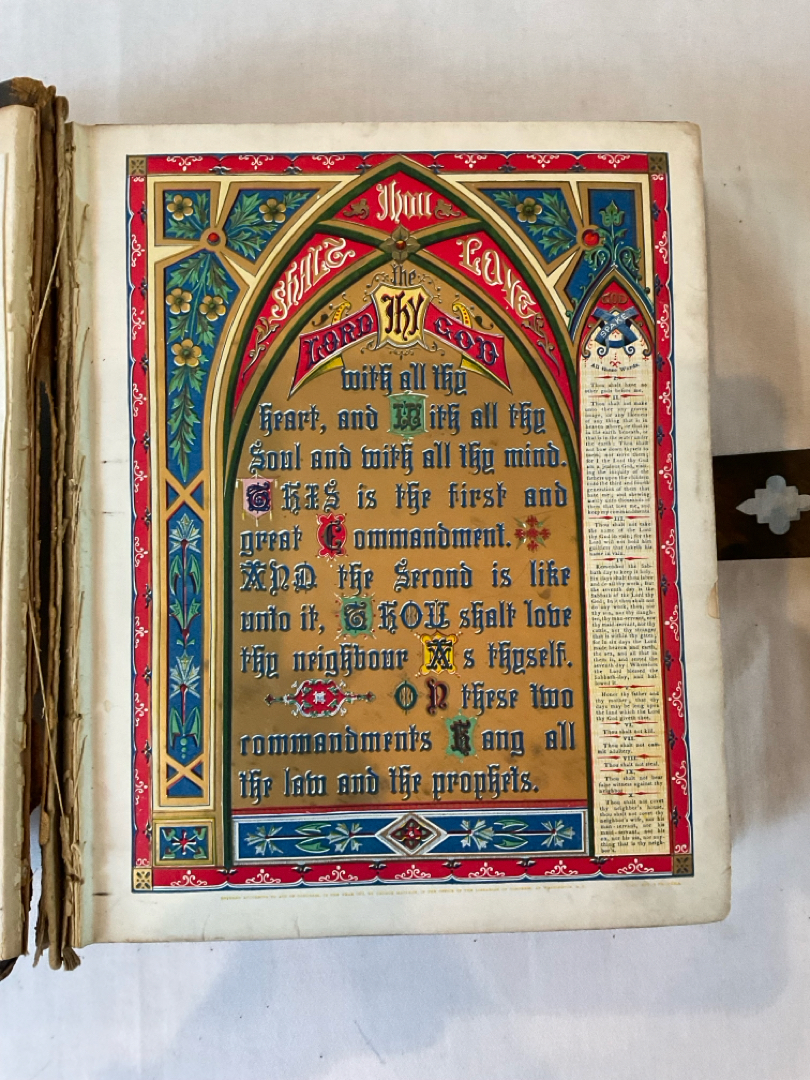 Thou
Shalt Love
the
LORD Thy GOD
with all thy
heart, and With all thy
Soul and with all thy mind.
THIS is the first and
great Commandment.
AND the Second is like
unto it, THOU shalt love
thy neighbour As thyself.
ON these two
commandments Hang all
the law and the prophets.
GOD
SPAKE
All these Words.
I.
Thou shalt have no
other gods before me.
II.
Thou shalt not make
unto thee any graven
image, or any likeness
of any thing that is in
heaven above, or that is
in the earth beneath, or
that is in the water under
the earth: Thou shalt
not bow down thyself to
them, nor serve them;
for I the Lord thy God
am a jealous God, visit-
ing the iniquity of the
fathers upon the children
unto the third and fourth
generation of them that
hate me; and shewing
mercy unto thousands of
them that love me, and
keep my commandments.
III.
Thou shalt not take
the name of the Lord
thy God in vain; for the
Lord will not hold him
guiltless that taketh his
name in vain.
IV.
Remember the Sab-
bath day to keep it holy.
Six days shalt thou labor
and do all thy work; But
the seventh day is the
Sabbath of the Lord thy
God; in it thou shalt not
do any work, thou, nor
thy son, nor thy daugh-
ter, thy man-servant, nor
thy maid-servant, nor thy
cattle, nor thy stranger
that is within thy gates;
for in six days the Lord
made heaven and earth,
the sea, and all that in
them is, and rested the
seventh day; Wherefore
the Lord blessed the
Sabbath-day, and hal-
lowed it.
V.
Honor thy father and
thy mother; that thy
days may be long upon
the land which the Lord
thy God giveth thee.
VI.
Thou shalt not kill.
VII.
Thou shalt not com-
mit adultery.
VIII.
Thou shalt not steal.
IX.
Thou shalt not bear
false witness against thy
neighbor.
X.
Thou shalt not covet
thy neighbor's house,
thou shalt not covet thy
neighbor's wife, nor his
man-servant, nor his
maid-servant, nor his
ox, nor his ass, nor any-
thing that is thy neigh-
bor's.